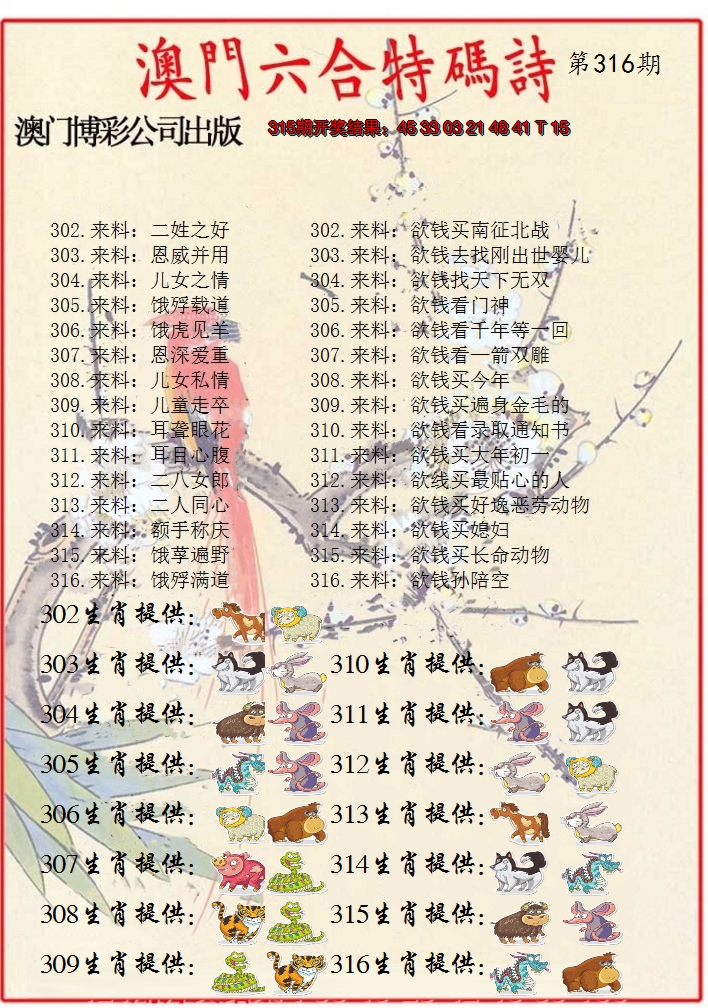 澳門六合特碼詩 第316期
澳门博彩公司出版 315期开奖结果：45 33 03 21 48 41 T 15
302.来料：二姓之好 302.来料：欲钱买南征北战
303.来料：恩威并用 303.来料：欲钱去找刚出世婴儿
304.来料：儿女之情 304.来料：欲钱找天下无双
305.来料：饿殍载道 305.来料：欲钱看门神
306.来料：饿虎见羊 306.来料：欲钱看千年等一回
307.来料：恩深爱重 307.来料：欲钱看一箭双雕
308.来料：儿女私情 308.来料：欲钱买今年
309.来料：儿童走卒 309.来料：欲钱买遍身金毛的
310.来料：耳聋眼花 310.来料：欲钱看录取通知书
311.来料：耳目心腹 311.来料：欲钱买大年初一
312.来料：二八女郎 312.来料：欲线买最贴心的人
313.来料：二人同心 313.来料：欲钱买好逸恶劳动物
314.来料：额手称庆 314.来料：欲钱买媳妇
315.来料：饿莩遍野 315.来料：欲钱买长命动物
316.来料：饿殍满道 316.来料：欲钱孙陪空
302生肖提供：
303生肖提供： 310生肖提供：
304生肖提供： 311生肖提供：
305生肖提供： 312生肖提供：
306生肖提供： 313生肖提供：
307生肖提供： 314生肖提供：
308生肖提供： 315生肖提供：
309生肖提供： 316生肖提供：